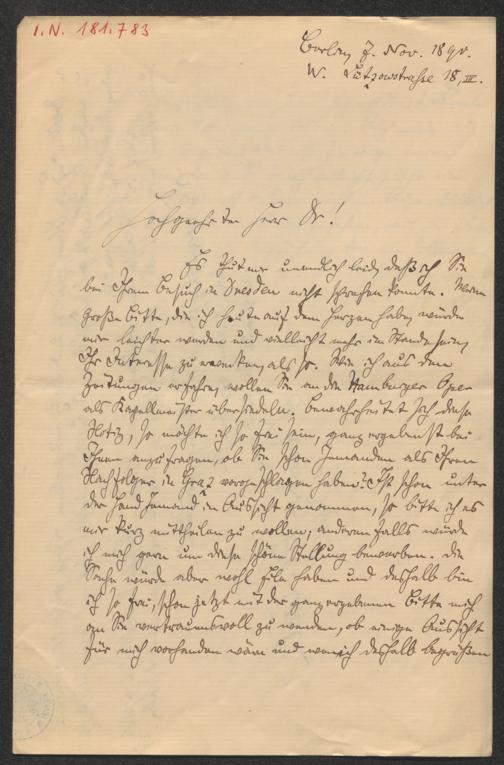 I.N. 181.783
Berlin 7. Nov. 1890.
W. Lützowstrasse 18, III.
Hochgeehrter Herr Dr!
Es thut mir unendlich leid, daß ich Sie
bei Ihrem Besuch in Dresden nicht sprechen konnte. Meine
große Bitte, die ich heute auf dem Herzen habe, würde
mir leichter werden und vielleicht mehr im Stande sein,
Ihr Interesse zu erwecken, als so. Wie ich aus den
Zeitungen erfahre, wollen Sie an die Hamburger Oper
als Kapellmeister übersiedeln. Bewahrheitet sich diese
Notiz, so möchte ich so frei sein, ganz ergebenst bei
Ihnen anzufragen, ob Sie schon Jemanden als Ihren
Nachfolger in Graz vorgeschlagen haben? Ist schon unter
der Hand Jemand in Aussicht genommen, so bitte ich es
mir kurz mittheilen zu wollen, anderen Falls würde
ich mich gern um diese schöne Stellung bewerben. Die
Sache würde aber wohl Eile haben und deshalb bin
ich so frei, schon jetzt mit der ganz ergebenen Bitte mich
an Sie vertrauensvoll zu wenden, ob einige Aussicht
für mich vorhanden wäre und wen ich deshalb begrüßen